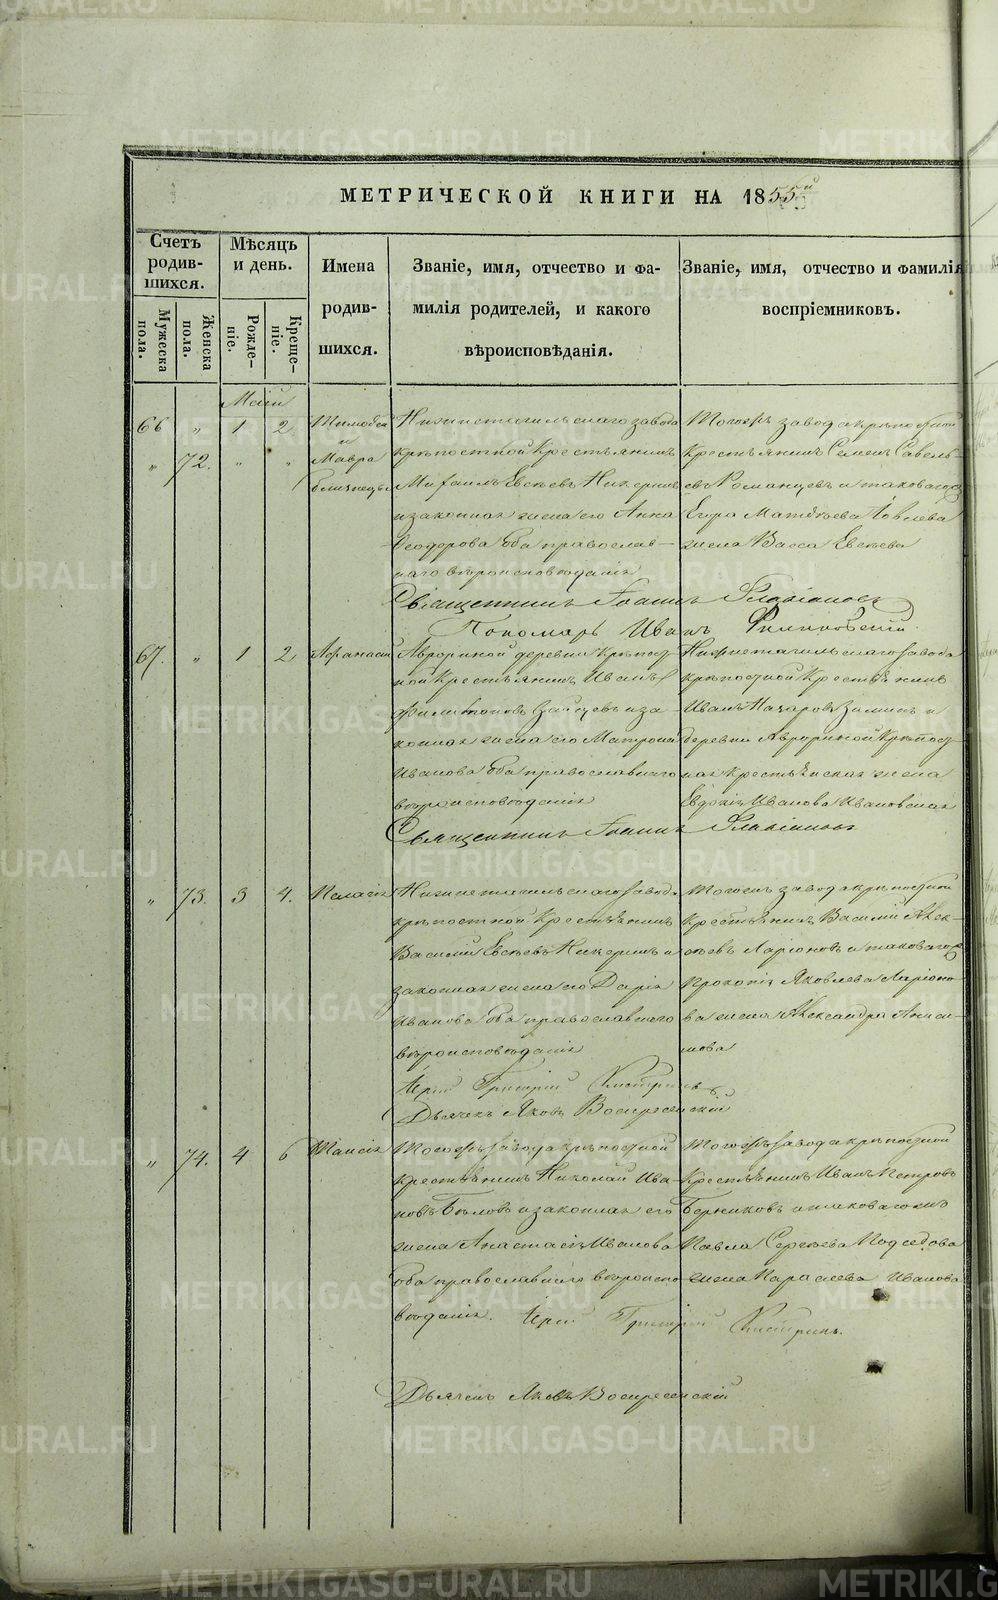 МЕТРИЧЕСКОЙ КНИГИ НА 1855й
Счетъ родив-шихся.
Мѣсяцъ и день.
Имена родив-шихся.
Званіе, имя, отчество и фа-
милія родителей, и какого
вѣроисповѣданія.
Званіе, имя, отчество и фамилія
воспріемниковъ.
Мужеска пола.
Женска пола.
Рожде-ніе.
Креще-ніе.
Маій
66 " 1 2 Тимофей
и
" 72. " " Мавра
близнецы
Нижнетагильскаго завода
крѣпостной Крестьянинъ
Михаилъ Евсѣевъ
и законная жена его Анна
Ѳеодорова оба православ-
наго вѣроисповѣданія
Тогожъ завода крѣпостной
Крестьянинъ Семенъ Савель-
евъ Романцевъ и таковагожъ
Егора Матвѣева
жена Васса Евсѣева
Священникъ Іоаннъ Флавіановъ
Пономарь Иванъ
67. " 1 2 Афанасій
Авроринской деревни крѣпост-
ной Крестьянинъ Иванъ
Филимоновъ Зайцевъ и за-
конная жена его Матрона
Иванова оба православнаго
вѣроисповѣданія
Нижнетагильскаго завода
крѣпостной Крестьянинъ
Иванъ Назаровъ Зиминъ и
деревни Авроринской Крѣпост-
ная крестьянская жена
Евдокія Иванова Ивановская
Священникъ Іоаннъ Флавіановъ
" 73. 3 4. Пелагія
Нижнетагильскаго завода
крѣпостной Крестьянинъ
Василий Евсѣевъ и
законная жена его Дарія
Иванова оба православнаго
вѣроисповѣданія
Тогожъ завода крѣпостной
Крестьянинъ Василий Алек-
сѣевъ Ларіоновъ и таковагожъ
Прокопія Яковлева Ларіоно-
ва жена Александра Аниси-
мова
Іерей Григорій
Дьячекъ Яковъ Воскресенскій
" 74. 4 6 Таисія
Тогожъ завода крѣпостной
крестьянинъ Николай Ива-
новъ Бѣловъ и законная его
жена Анастасія Иванова
оба православнаго вѣроиспо-
вѣданія.
Тогожъ завода крѣпостной
Крестьянинъ Иванъ Петровъ
Берниковъ и таковагожъ
Павла Сергѣева Подседова
жена Параскева Иванова
Іерей Григорій
Дьячекъ Яковъ Воскресенскій
METRIKI.GASO-URAL.RU